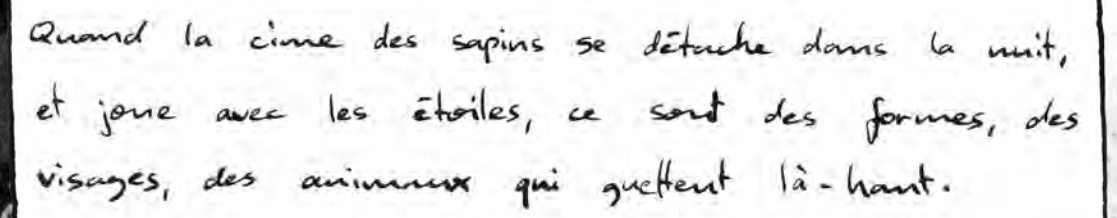 Quand la cime des sapins se détache dans la nuit,
et joue avec les étoiles, ce sont des formes, des
visages, des animaux qui guettent là-haut.